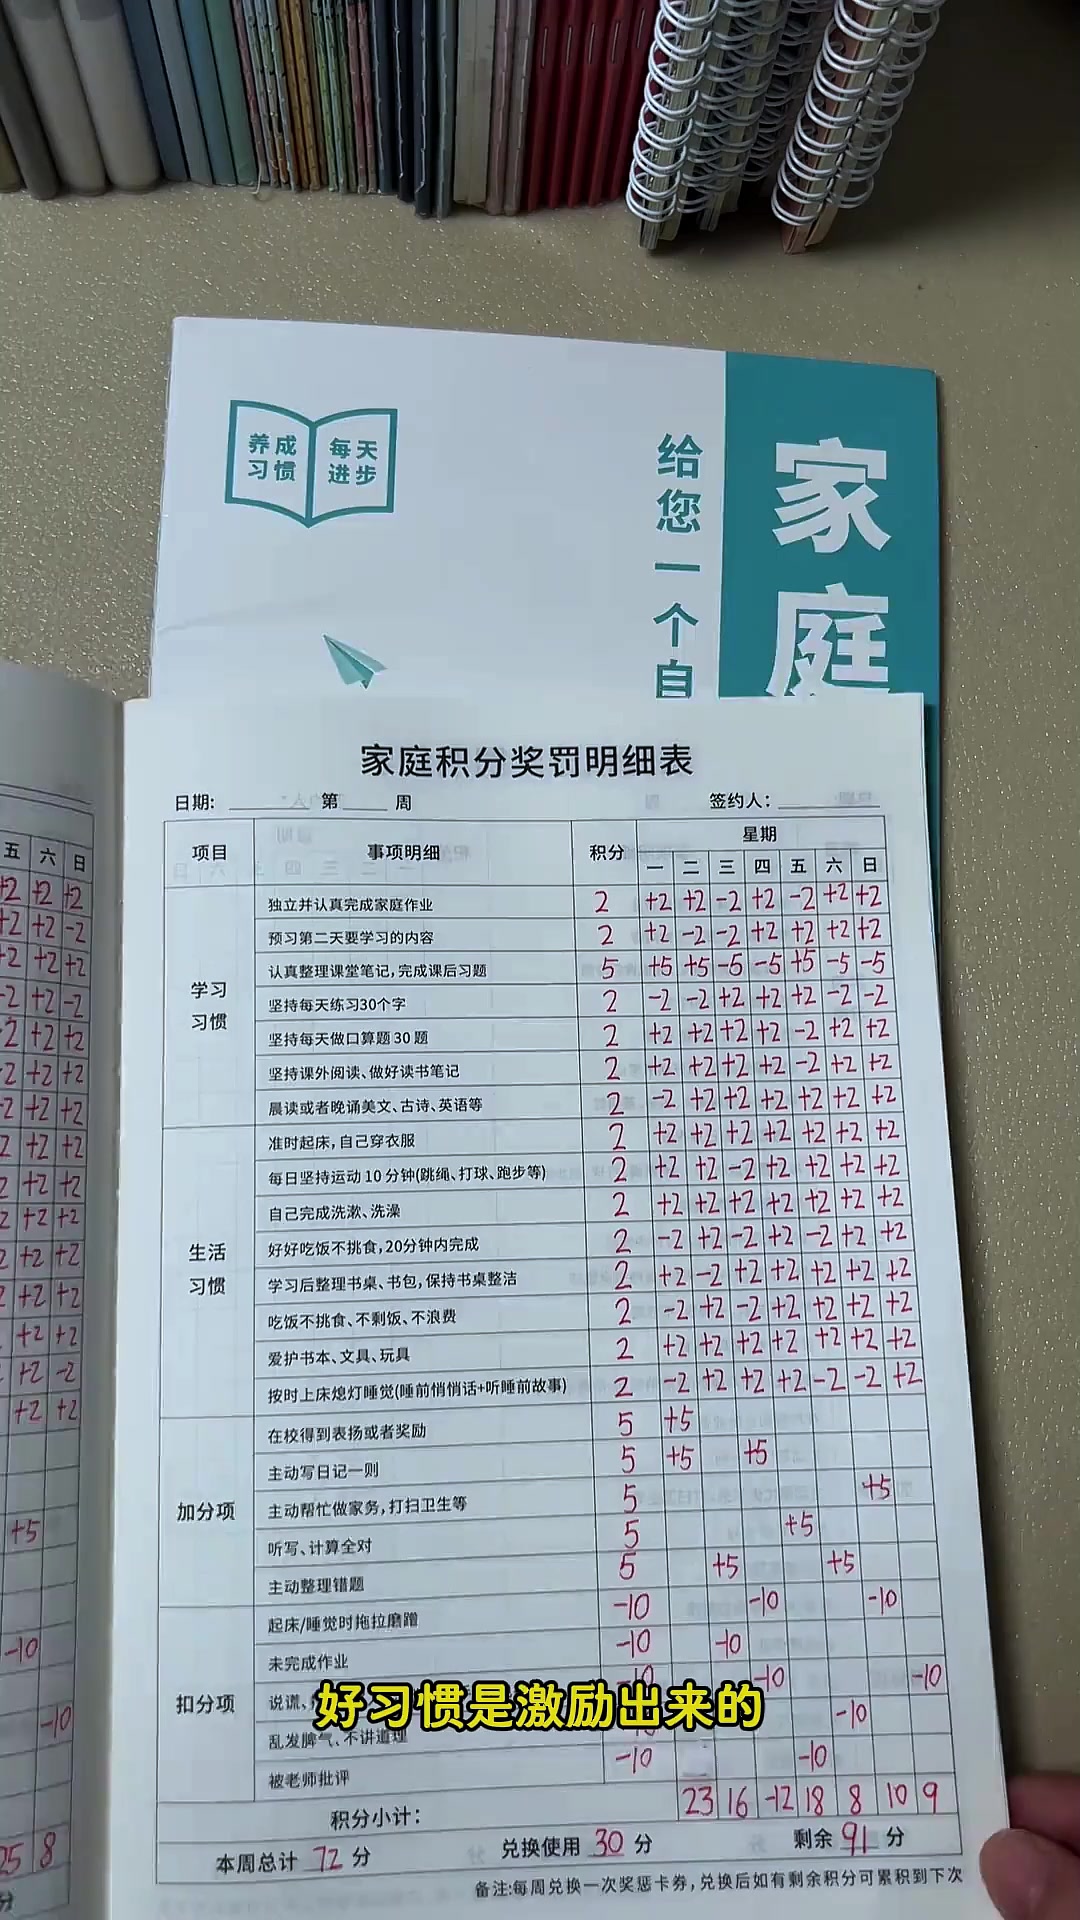 养成 每天
习惯 进步
给您一个自
家庭
家庭积分奖罚明细表
日期: 第 周 签约人:
项目 事项明细 积分 星期
一 二 三 四 五 六 日
学习习惯
独立并认真完成家庭作业 2 +2 +2 -2 +2 -2 +2 +2
预习第二天要学习的内容 2 +2 -2 -2 +2 +2 +2 +2
认真整理课堂笔记,完成课后习题 5 +5 +5 -5 -5 +5 -5 -5
坚持每天练习30个字 2 -2 -2 +2 +2 +2 -2 -2
坚持每天做口算题30题 2 +2 +2 +2 +2 -2 +2 +2
坚持课外阅读、做好读书笔记 2 +2 +2 +2 +2 -2 +2 +2
晨读或者晚诵美文、古诗、英语等 2 -2 +2 +2 +2 +2 +2 +2
生活习惯
准时起床,自己穿衣服 2 +2 +2 +2 +2 +2 +2 +2
每日坚持运动10分钟(跳绳、打球、跑步等) 2 +2 +2 -2 +2 +2 +2 +2
自己完成洗漱、洗澡 2 +2 +2 +2 +2 +2 +2 +2
好好吃饭不挑食,20分钟内完成 2 -2 +2 -2 +2 -2 +2 +2
学习后整理书桌、书包,保持书桌整洁 2 +2 -2 +2 +2 +2 +2 +2
吃饭不挑食、不剩饭、不浪费 2 -2 +2 -2 +2 +2 +2 +2
爱护书本、文具、玩具 2 +2 +2 +2 +2 +2 +2 +2
按时上床熄灯睡觉(睡前悄悄话+听睡前故事) 2 -2 +2 +2 +2 -2 -2 +2
加分项
在校得到表扬或者奖励 5 +5
主动写日记一则 5 +5 +5
主动帮忙做家务,打扫卫生等 5 +5
听写、计算全对 5 +5
主动整理错题 5 +5 +5
扣分项
起床/睡觉时拖拉磨蹭 -10 -10 -10
未完成作业 -10 -10
说谎、 -10 -10 -10
乱发脾气、不讲道理 -10
被老师批评 -10 -10
好习惯是激励出来的
积分小计: 23 16 -12 18 8 10 9
本周总计 72 分 兑换使用 30 分 剩余 91 分
备注:每周兑换一次奖惩卡券,兑换后如有剩余积分可累积到下次
五 六 日
+2 +2 +2
+2 +2 -2
+2 +2 +2
-2 +2 -2
+2 +2
+2 +2
+2 +2
+2 +2
+2 +2
+2 +2
+2 +2
+2 +2
+2 +2
+2 -2
+2 +2
+5
-10
-10
25 8
分